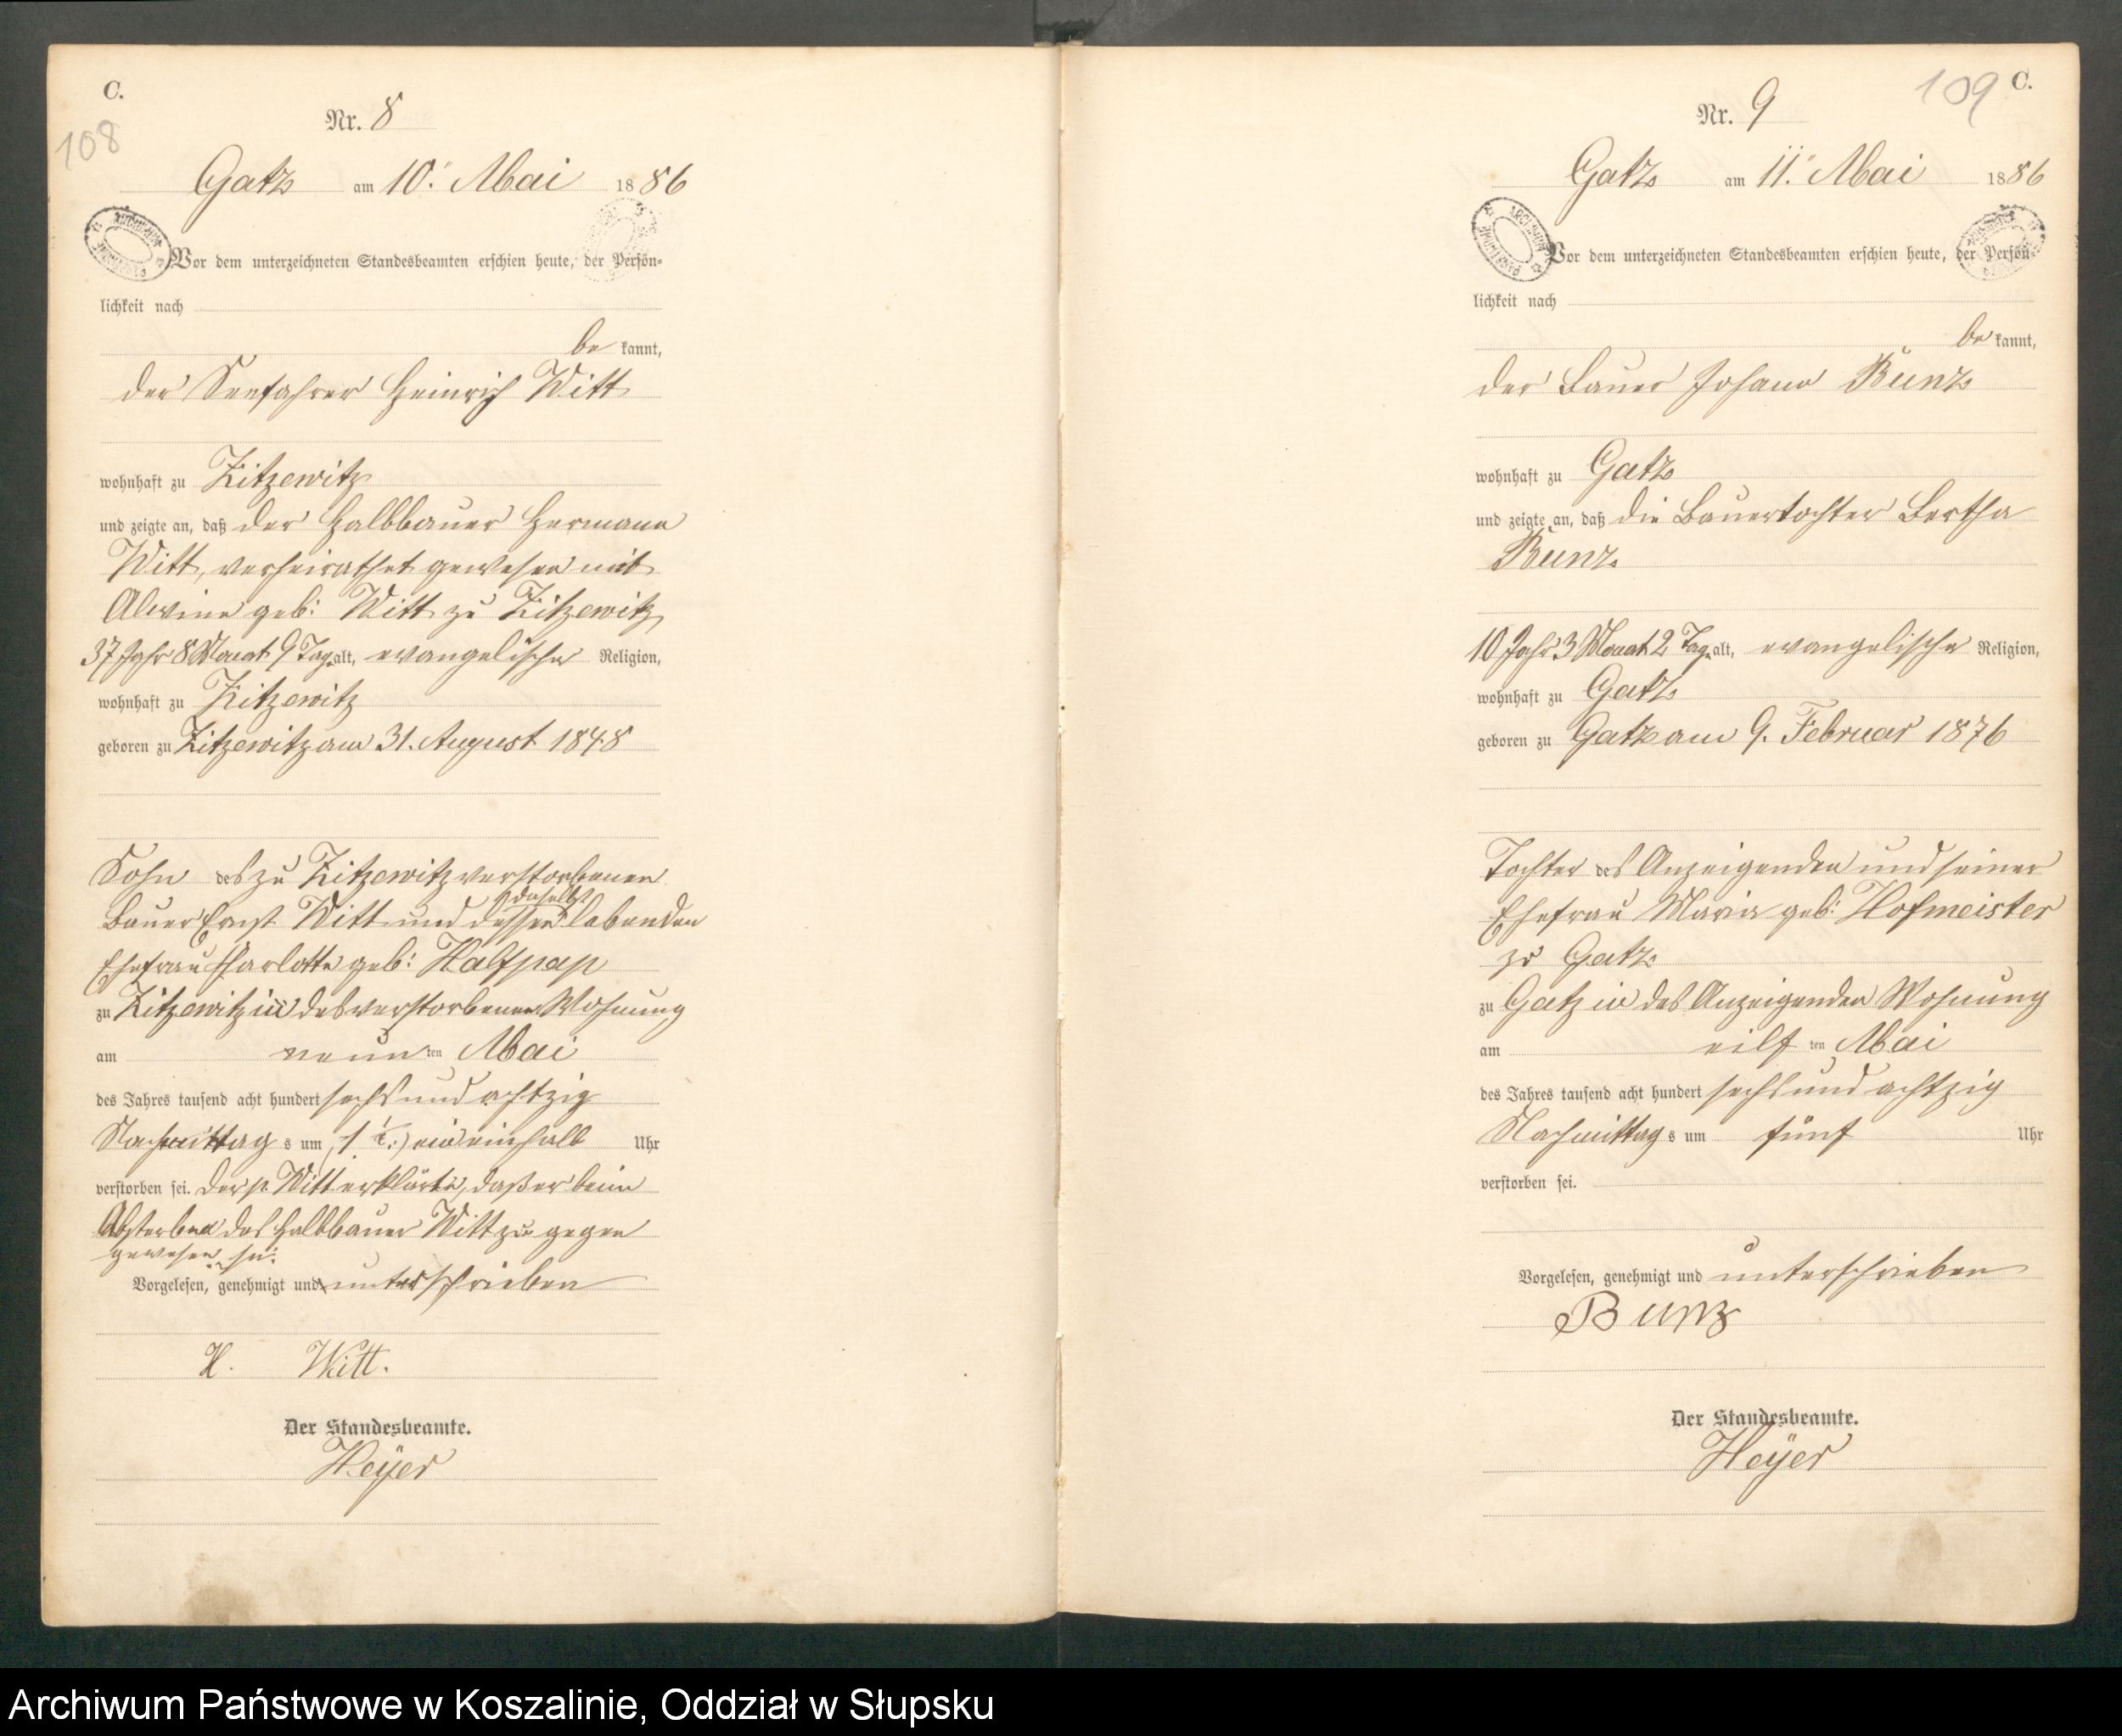 C.
108
Nr. 8
Gatz am 10. Mai 1886
Vor dem unterzeichneten Standesbeamten erschien heute, der Persön-
lichkeit nach
be kannt,
der Seefahrer Heinrich Witt
wohnhaft zu Zitzewitz
und zeigte an, daß der Halbbauer Hermann
Witt, verheirathet gewesen mit
Alwine geb: Witt zu Zitzewitz
37 Jahr 8 Monat 9 Tag alt, evangelischer Religion,
wohnhaft zu Zitzewitz
geboren zu Zitzewitz am 31. August 1848
Sohn des zu Zitzewitz verstorbenen
daselbst
Bauer Ernst Witt und dessen lebenden
Ehefrau Charlotte geb: Halfpap
zu Zitzewitz in des verstorbenen Wohnung
am neun ten Mai
des Jahres tausend acht hundert sechs und achtzig
Nachmittag s um ein einhalb Uhr
verstorben sei. Der p. Witt erklärte, daß er beim
Absterben des Halbbauer Witt zu gegen
gewesen sei.
Vorgelesen, genehmigt und unterschrieben
H. Witt.
Der Standesbeamte.
Heÿer
109 C.
Nr. 9
Gatz am 11. Mai 1886
Vor dem unterzeichneten Standesbeamten erschien heute, der Persön-
lichkeit nach
be kannt,
der Bauer Johann Bunz
wohnhaft zu Gatz
und zeigte an, daß die Bauertochter Bertha
Bunz
10 Jahr 3 Monat 2 Tag alt, evangelische Religion,
wohnhaft zu Gatz
geboren zu Gatz am 9. Februar 1876
Tochter des Anzeigenden und seiner
Ehefrau Maria geb: Hofmeister
zu Gatz
zu Gatz in des Anzeigenden Wohnung
am eilf ten Mai
des Jahres tausend acht hundert sechs und achtzig
Nachmittag s um fünf Uhr
verstorben sei.
Vorgelesen, genehmigt und unterschrieben
Bunz
Der Standesbeamte.
Heÿer
Archiwum Państwowe w Koszalinie, Oddział w Słupsku